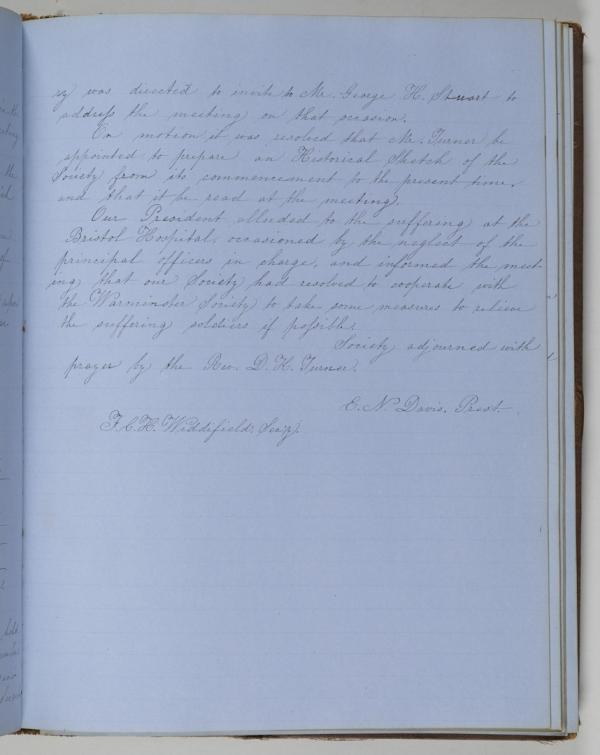 ry was directed to invite to Mr. George H. Stuart to
address the meeting on that occasion.
On motion it was resolved that Mr. Turner be
appointed to prepare an Historical Sketch of the
Society from its commencement to the present time,
and that it be read at the meeting.
Our President alluded to the suffering at the
Bristol Hospital, occasioned by the neglect of the
principal officers in charge, and informed the meet-
ing that our Society had resolved to cooperate with
the Warminster Society to take some measures to relieve
the suffering soldiers if possible.
Society adjourned with
prayer by the Rev. D. K. Turner.
E. N. Davis, Prest.
F. C. H. Widdifield, Sec'y.